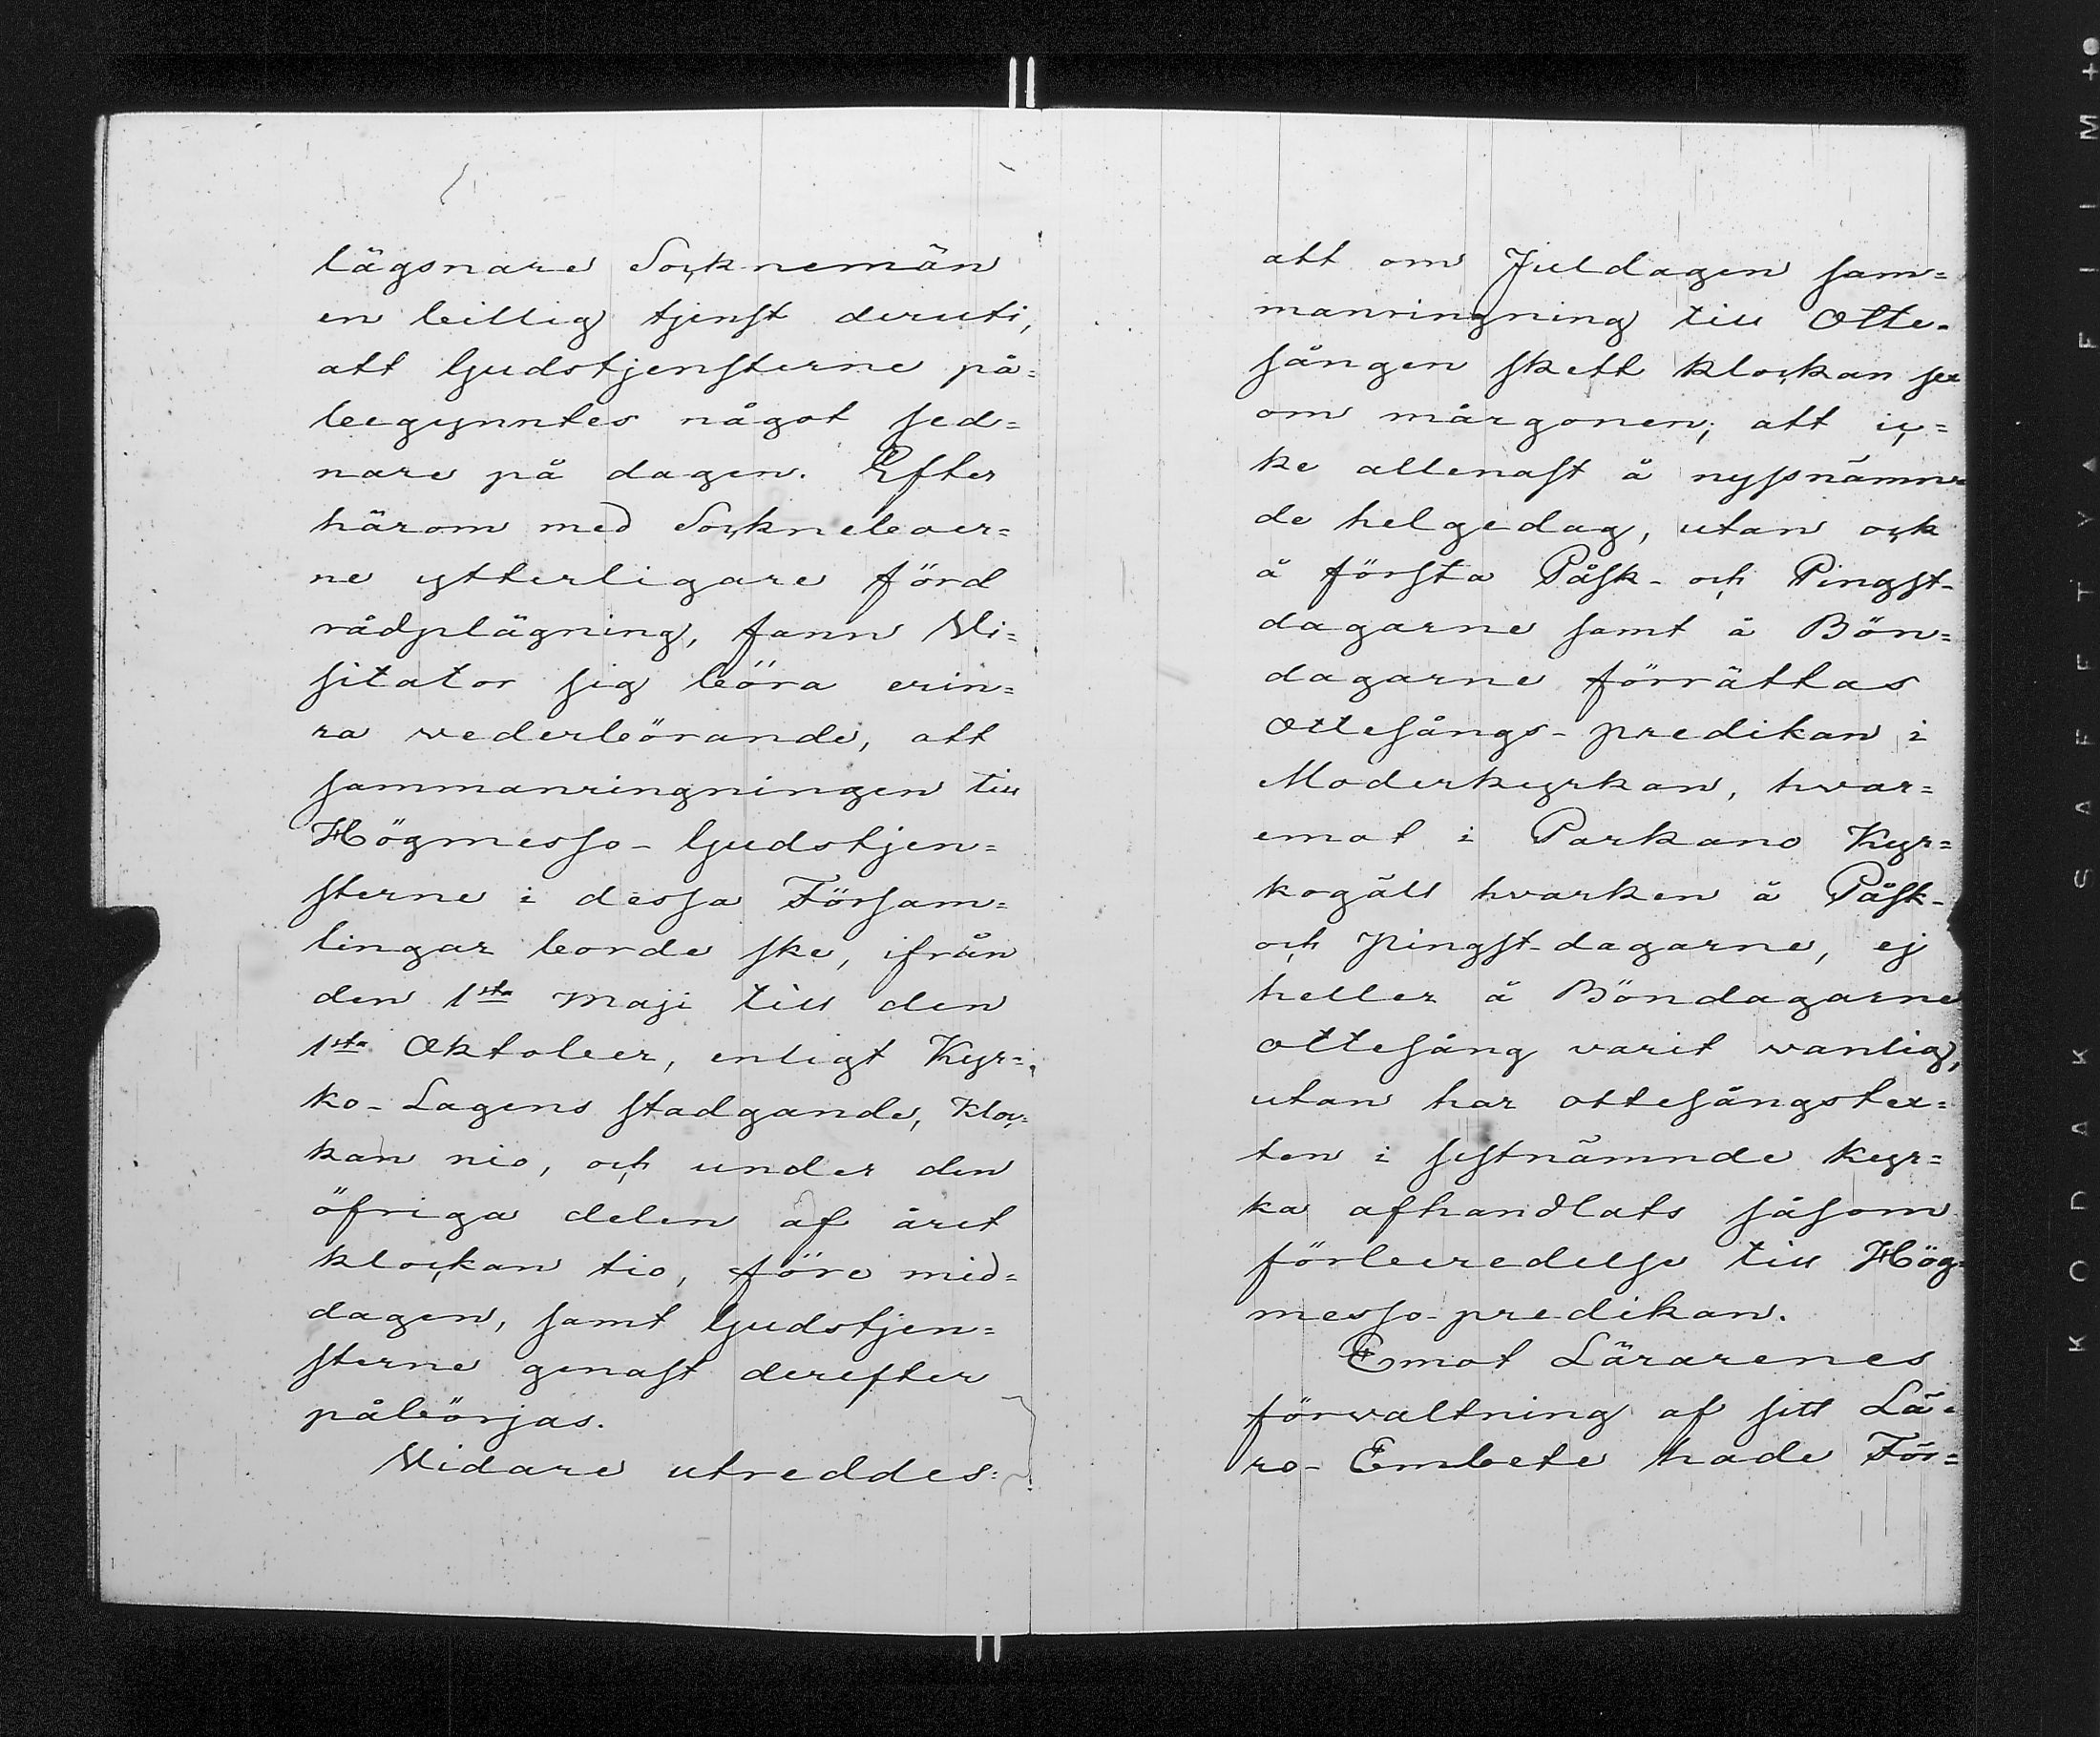 lägsnare Socknemän
en billig tjenst deruti,
att Gudstjensterne på=
begynntes något sed=
nare på dagen. Efter
härom med Socknebover=
ne ytterligare förd
rådplägning, fann Vi=
sitator sig böra erin=
ra wederbörande, att
sammanringningen till
Högmesso-Gudstjen=
sterne i dessa Försam=
lingar borde ske, ifrån
den 1sta Maji till den
1sta Oktober, enligt Kyr=
ko-Lagens stadgande, kloc=
kan nio, och under den
öfriga delen af året
klockan tio, före mid=
dagen, samt Gudstjen=
sterne genast derefter
påbörjas.
Vidare utreddes:
att om Juldagen sam=
manringning till Otte=
sången skett klockan sex
om mårgonen; att ic=
ke allenast å nyssnämn=
de helgedag, utan ock
å första Påsk- och Pingst-
dagarne samt å Bön=
dagarne förrättas
Ottesångs-predikan i
Moderkyrkan, hvar=
emot i Parkano Kyr=
kogäll hvarken å Påsk-
och Pingst-dagarne, ej
heller å Böndagarne
ottesång varit wanlig,
utan har ottesångstex=
ten i sistnämnde kyr=
ka afhandlats såsom
förberedelse till Hög=
messo-predikan.
Emot Lärarenes
förwaltning af sitt Lä=
ro-Embete hade För=
KODAK SAFETY FILM